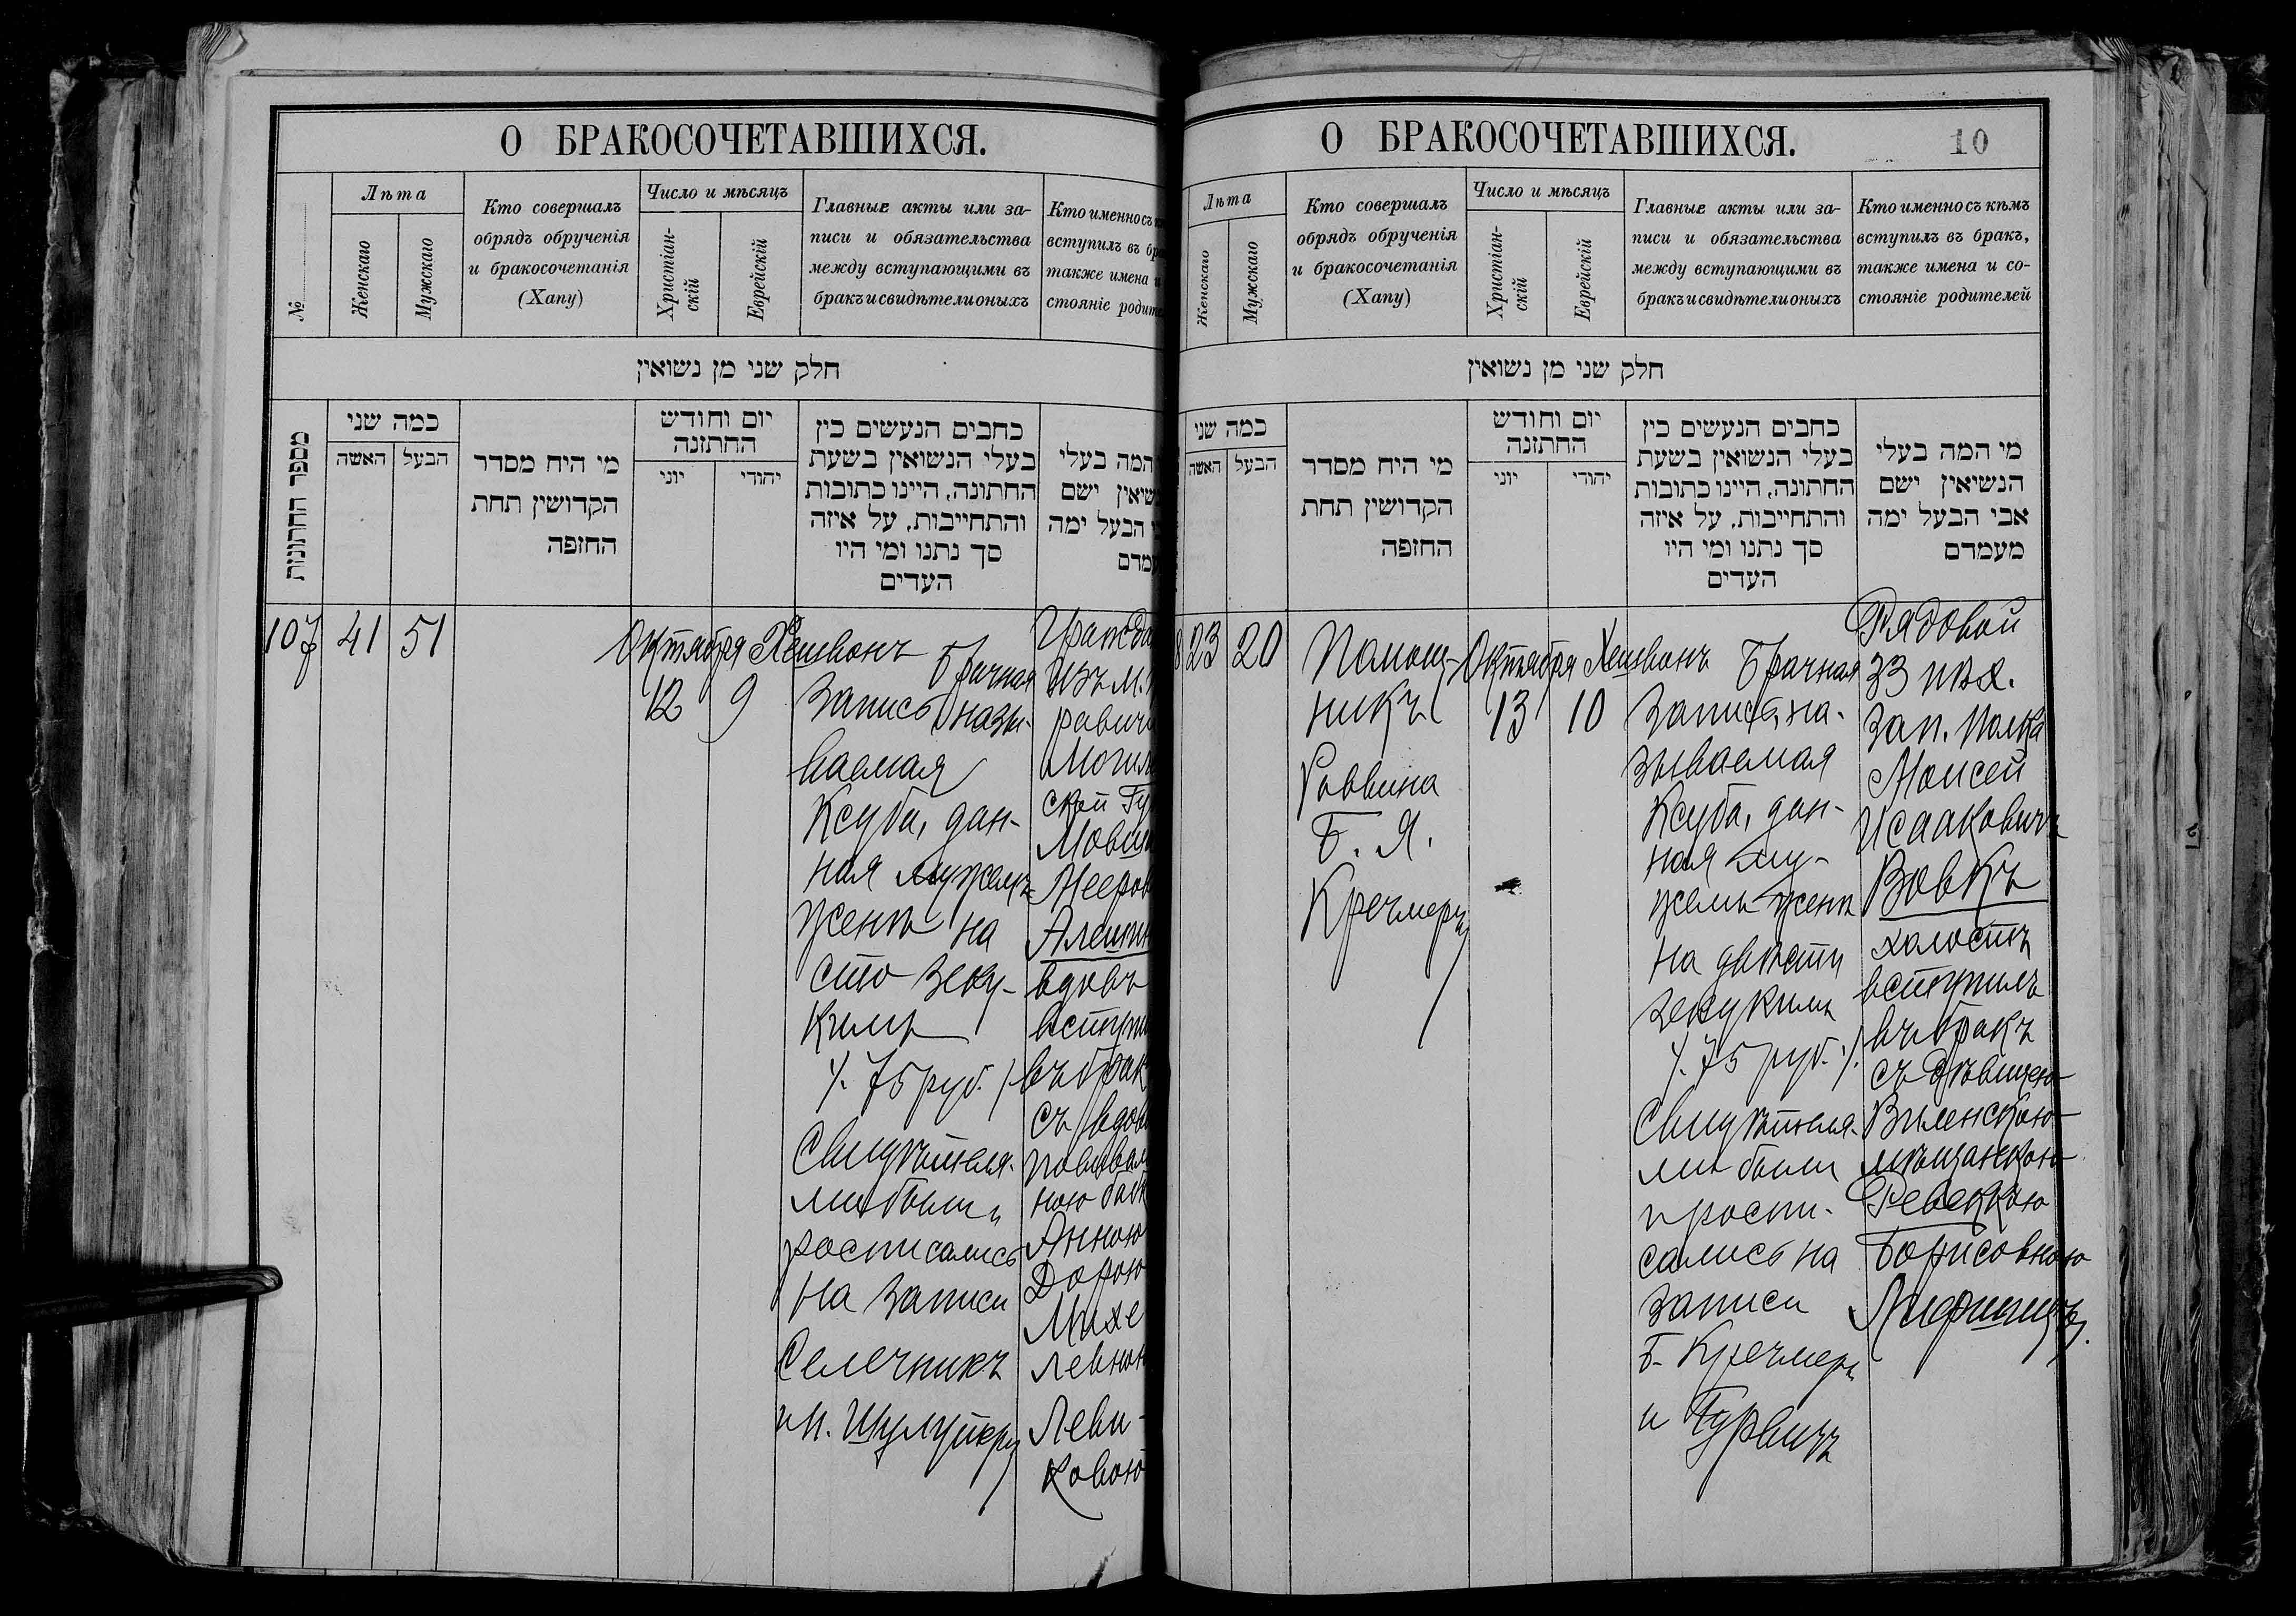 О БРАКОСОЧЕТАВШИХСЯ.
№
Лѣта
Женскаго
Мужскаго
Кто совершалъ
обрядъ обрученія
и бракосочетанія
(Хапу)
Число и мѣсяцъ
Христіан-
скій
Еврейскій
Главные акты или за-
писи и обязательства
между вступающими въ
бракъ и свидѣтели оныхъ
Кто именно съ
вступилъ въ
также имена
стояніе
חלק שני מן נשואין
מספר החתונות
כמה שני
האשה
הבעל
מי היח מסדר
הקדושין תחת
החופה
יום וחודש
החתזנה
יוני
יהודי
כחבים הנעשים כין
בעלי הנשואין בשעת
החתונה, היינו כתובות
והתחייבות, על איזה
סך נתנו ומי היו
העדים
המה בעלי
ישם
הבעל ימה
107
41
51
Октября
12
Хешвонъ
9
Брачная
Запись назы-
ваемая
Ксуба, дан-
ная мужемъ
женѣ на
сто зеку-
кимъ
/. 75 руб. /
Свидѣтеля-
ми были и
росписались
на записи
Селечникъ
и М.
Изъ м.
ской
Алешин
вдовъ
въ брак
съ вдов
Анною
Дорою
Михе
левною
Леви-
ковою
О БРАКОСОЧЕТАВШИХСЯ.
10
Лѣта
Женскаго
Мужскаго
Кто совершалъ
обрядъ обрученія
и бракосочетанія
(Хапу)
Число и мѣсяцъ
Христіан-
скій
Еврейскій
Главные акты или за-
писи и обязательства
между вступающими въ
бракъ и свидѣтели оныхъ
Кто именно съ кѣмъ
вступилъ въ бракъ,
также имена и со-
стояніе родителей
חלק שני מן נשואין
כמה שני
האשה
הבעל
מי היח מסדר
הקדושין תחת
החופה
יום וחודש
החתזנה
יוני
יהודי
כחבים הנעשים כין
בעלי הנשואין בשעת
החתונה, היינו כתובות
והתחייבות, על איזה
סך נתנו ומי היו
העדים
מי המה בעלי
הנשיאין ישם
אבי הבעל ימה
מעמדם
8
23
20
Помощ-
никъ
Раввина
Б. Я.
Кречмеръ
Октября
13
Хешвонъ
10
Брачная
Запись, на-
зываемая
Ксуба, дан-
ная му-
жемъ женѣ
на двѣсти
зекукимъ
/. 75 руб. /.
Свидѣтеля-
ми были
и роспи-
сались на
записи
Б. Кречмеръ
и Гурвичъ
Рядовой
33 пѣх.
Зап. полка
Моисей
Исааковичъ
Вовкъ
холостъ
вступилъ
въ бракъ
съ дѣвицею
Виленскою
мѣщанкою
Ревеккою
Борисовною
Лифшицъ.